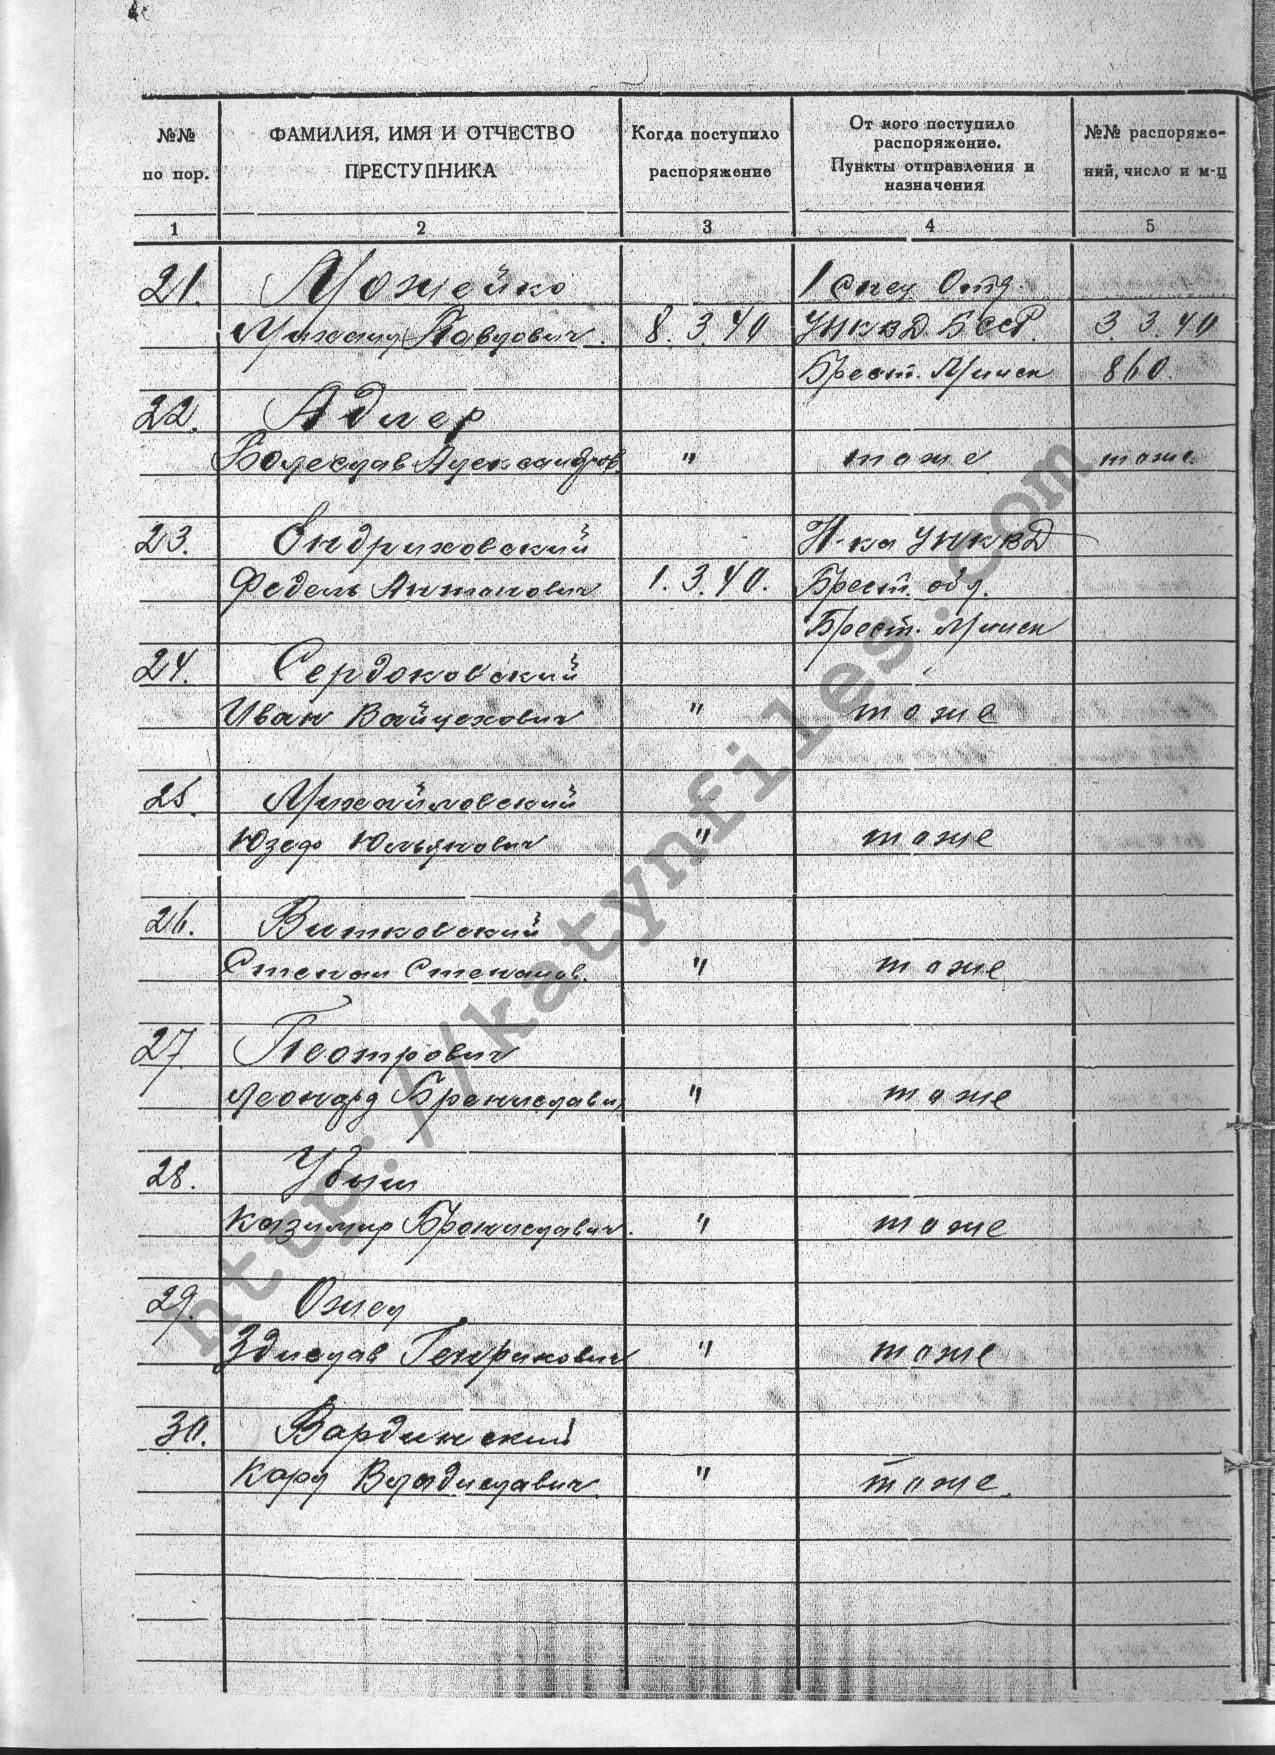 №№ по пор.
ФАМИЛИЯ, ИМЯ И ОТЧЕСТВО ПРЕСТУПНИКА
Когда поступило распоряжение
От кого поступило распоряжение. Пункты отправления и назначения
№№ распоряжений, число и м-ц
1 2 3 4 5
21. Можейко 1 спец Отд.
Михаил Павлович. 8.3.40 УНКВД БССР. 3.3.40
Брест. Минск 860.
22. Адлер
Болеслав Александров. " тоже тоже.
23. Ендриховский Н-ка УНКВД
Фадель Антонович 1.3.40. Брест. обл.
Брест. Минск
24. Сердоковский
Иван Вайцехович " тоже
25. Михайловский
Юзеф Юльянович " тоже
26. Витковский
Степан Степанов. " тоже
27. Пеотрович
Леонард Брониславич " тоже
28. Убыш
Казимир Брониславич. " тоже
29. Ожел
Здислав Генрикович " тоже
30. Вардинский
Карл Владиславич. " тоже.
http://katynfiles.com